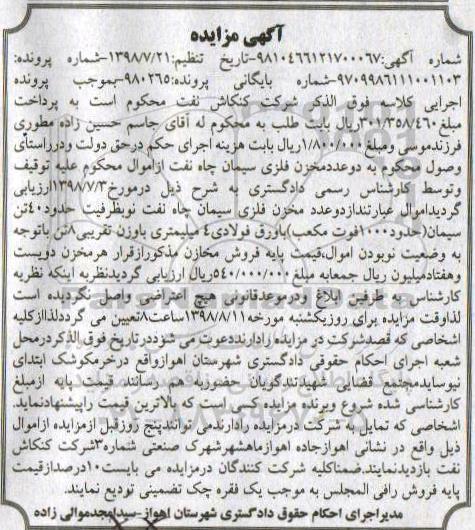 آگهی مزایده
شماره آگهی:۹۸۱۰۴۶۶۱۲۱۷۰۰۰۶۷-تاریخ تنظیم:۱۳۹۸/۷/۲۱-شماره پرونده:
۹۷۰۹۹۸۶۱۱۱۰۰۱۱۰۳-شماره بایگانی پرونده:۹۸۰۲۶۵-بموجب پرونده
اجرایی کلاسه فوق الذکر شرکت کنکاش نفت محکوم است به پرداخت
مبلغ۳۰۱/۳۵۸/۴۶۰ریال بابت طلب به محکوم له آقای جاسم حسین زاده مطوری
فرزندموسی ومبلغ۱/۸۰۰/۰۰۰ریال بابت هزینه اجرای حکم درحق دولت ودرراستای
وصول محکوم به دوعددمخزن فلزی سیمان چاه نفت ازاموال محکوم علیه توقیف
وتوسط کارشناس رسمی دادگستری به شرح ذیل درمورخ۱۳۹۸/۷/۳ارزیابی
گردیداموال عبارتندازدوعدد مخزن فلزی سیمان چاه نفت نوبظرفیت حدود۴۰تن
سیمان(حدود۱۰۰۰فوت مکعب)باورق فولادی۴ میلیمتری باوزن تقریبی۸تن باتوجه
به وضعیت نوبودن اموال،قیمت پایه فروش مخازن مذکورازقرار هرمخزن دویست
وهفتادمیلیون ریال جمعابه مبلغ ۵۴۰/۰۰۰/۰۰۰ریال ارزیابی گردیدنظربه اینکه نظریه
کارشناس به طرفین ابلاغ ودرموعدقانونی هیچ اعتراضی واصل نگردیده است
لذاوقت مزایده برای روزیکشنبه مورخه۱۳۹۸/۸/۱۱ساعت۸تعیین می گرددلذاازکلیه
اشخاصی که قصدشرکت در مزایده رادارنددعوت می شوددرتاریخ فوق الذکردرمحل
شعبه اجرای احکام حقوقی دادگستری شهرستان اهوازواقع درخرمکوشک ابتدای
نیوسایدمجتمع قضایی شهیدتندگویان حضوربه هم رسانند. قیمت پایه ازمبلغ
کارشناسی شده شروع وبرنده مزایده کسی است که بالاترین قیمت راپیشنهادنماید.
اشخاصی که تمایل به شرکت درمزایده رادارندمی توانندپنج روزقبل ازمزایده ازاموال
ذیل واقع در نشانی اهوازجاده اهوازماهشهرشهرک صنعتی شماره۳شرکت کنکاش
نفت بازدیدنمایند.ضمناکلیه شرکت کنندگان درمزایده می بایست۱۰درصدازقیمت
پایه فروش رافی المجلس به موجب یک فقره چک تضمینی تودیع نمایند.
مدیراجرای احکام حقوقی دادگستری شهرستان اهواز-سیدامجدموالی زاده